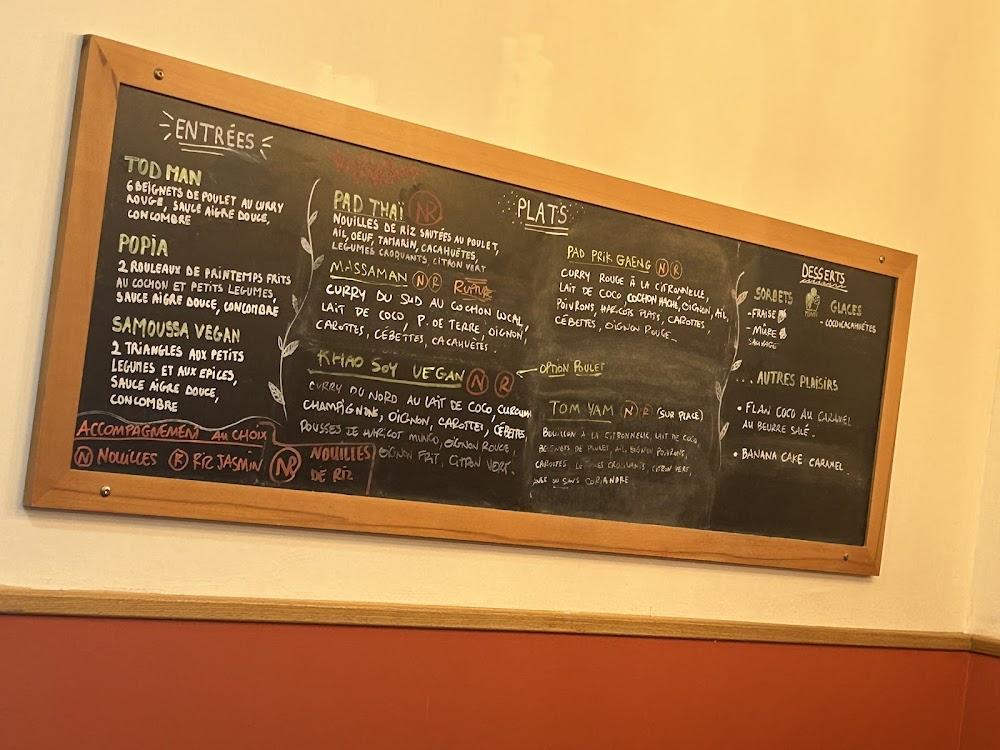 ENTRÉES
TOD MAN
6 BEIGNETS DE POULET AU CURRY
ROUGE, SAUCE AIGRE DOUCE,
CONCOMBRE
POPIA
2 ROULEAUX DE PRINTEMPS FRITS
AU COCHON ET PETITS LEGUMES,
SAUCE AIGRE DOUCE, CONCOMBRE
SAMOUSSA VEGAN
2 TRIANGLES AUX PETITS
LEGUMES ET AUX EPICES,
SAUCE AIGRE DOUCE,
CONCOMBRE
ACCOMPAGNEMENT AU CHOIX
N NOUILLES R RIZ JASMIN
NR NOUILLES
DE RIZ
PLATS
PAD THAÏ NR
NOUILLES DE RIZ SAUTÉES AU POULET,
AIL, OEUF, TAMARIN, CACAHUÈTES,
LEGUMES CROQUANTS, CITRON VERT
MASSAMAN N R RUPTURE
CURRY DU SUD AU COCHON LOCAL,
LAIT DE COCO, P. DE TERRE, OIGNON,
CAROTTES, CÉBETTES, CACAHUÈTES.
KHAO SOY VEGAN N R OPTION POULET
CURRY DU NORD AU LAIT DE COCO, CURCUMA
CHAMPIGNONS, OIGNON, CAROTTES, CÉBETTES,
POUSSES DE HARICOT MUNGO, OIGNON ROUGE,
OIGNON FRIT, CITRON VERT.
PAD PRIK GAENG N R
CURRY ROUGE À LA CITRONNELLE,
LAIT DE COCO, COCHON HACHÉ, OIGNON, AIL,
POIVRONS, HARICOTS PLATS, CAROTTES,
CÉBETTES, OIGNON ROUGE.
TOM YAM N R (SUR PLACE)
BOUILLON À LA CITRONNELLE, LAIT DE COCO,
BEIGNETS DE POULET, AIL, OIGNON, POIVRONS,
CAROTTES, LEGUMES CROQUANTS, CITRON VERT,
AVEC OU SANS CORIANDRE
DESSERTS
SORBETS
- FRAISE
- MÛRE
SAUVAGE
GLACES
- COCO/CACAHUÈTES
... AUTRES PLAISIRS
• FLAN COCO AU CARAMEL
AU BEURRE SALÉ.
• BANANA CAKE CARAMEL